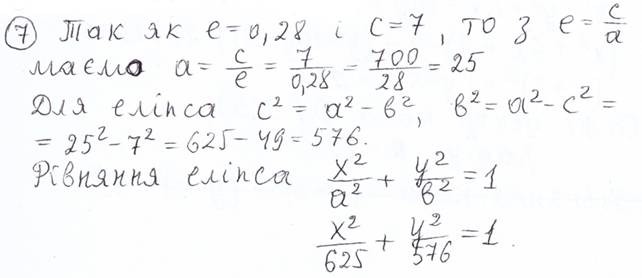 ⑦ Так як e=0,28 і c=7, то з e=c/a
маємо a= c/e = 7/0,28 = 700/28 = 25
Для еліпса c² = a² - b², b²=a²-c²=
= 25²-7² = 625-49=576.
Рівняння еліпса x²/a² + y²/b² = 1
x²/625 + y²/576 = 1.